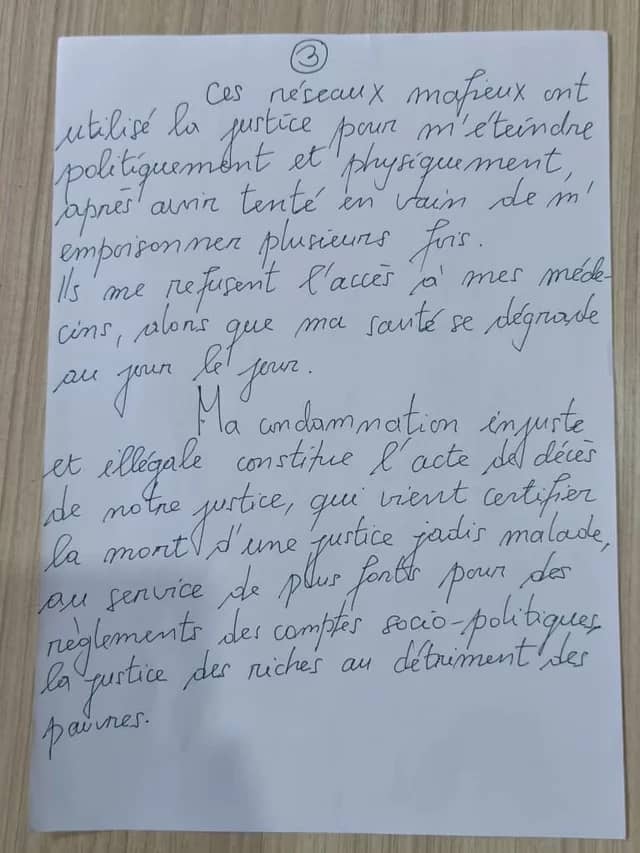 3
Ces réseaux mafieux ont
utilisé la justice pour m'éteindre
politiquement et physiquement,
après avoir tenté en vain de m'
empoisonner plusieurs fois.
Ils me refusent l'accès à mes méde-
cins, alors que ma santé se dégrade
au jour le jour.
Ma condamnation injuste
et illégale constitue l'acte de décès
de notre justice, qui vient certifier
la mort d'une justice jadis malade,
au service de plus forts pour des
règlements des comptes socio-politiques,
la justice des riches au détriment des
pauvres.